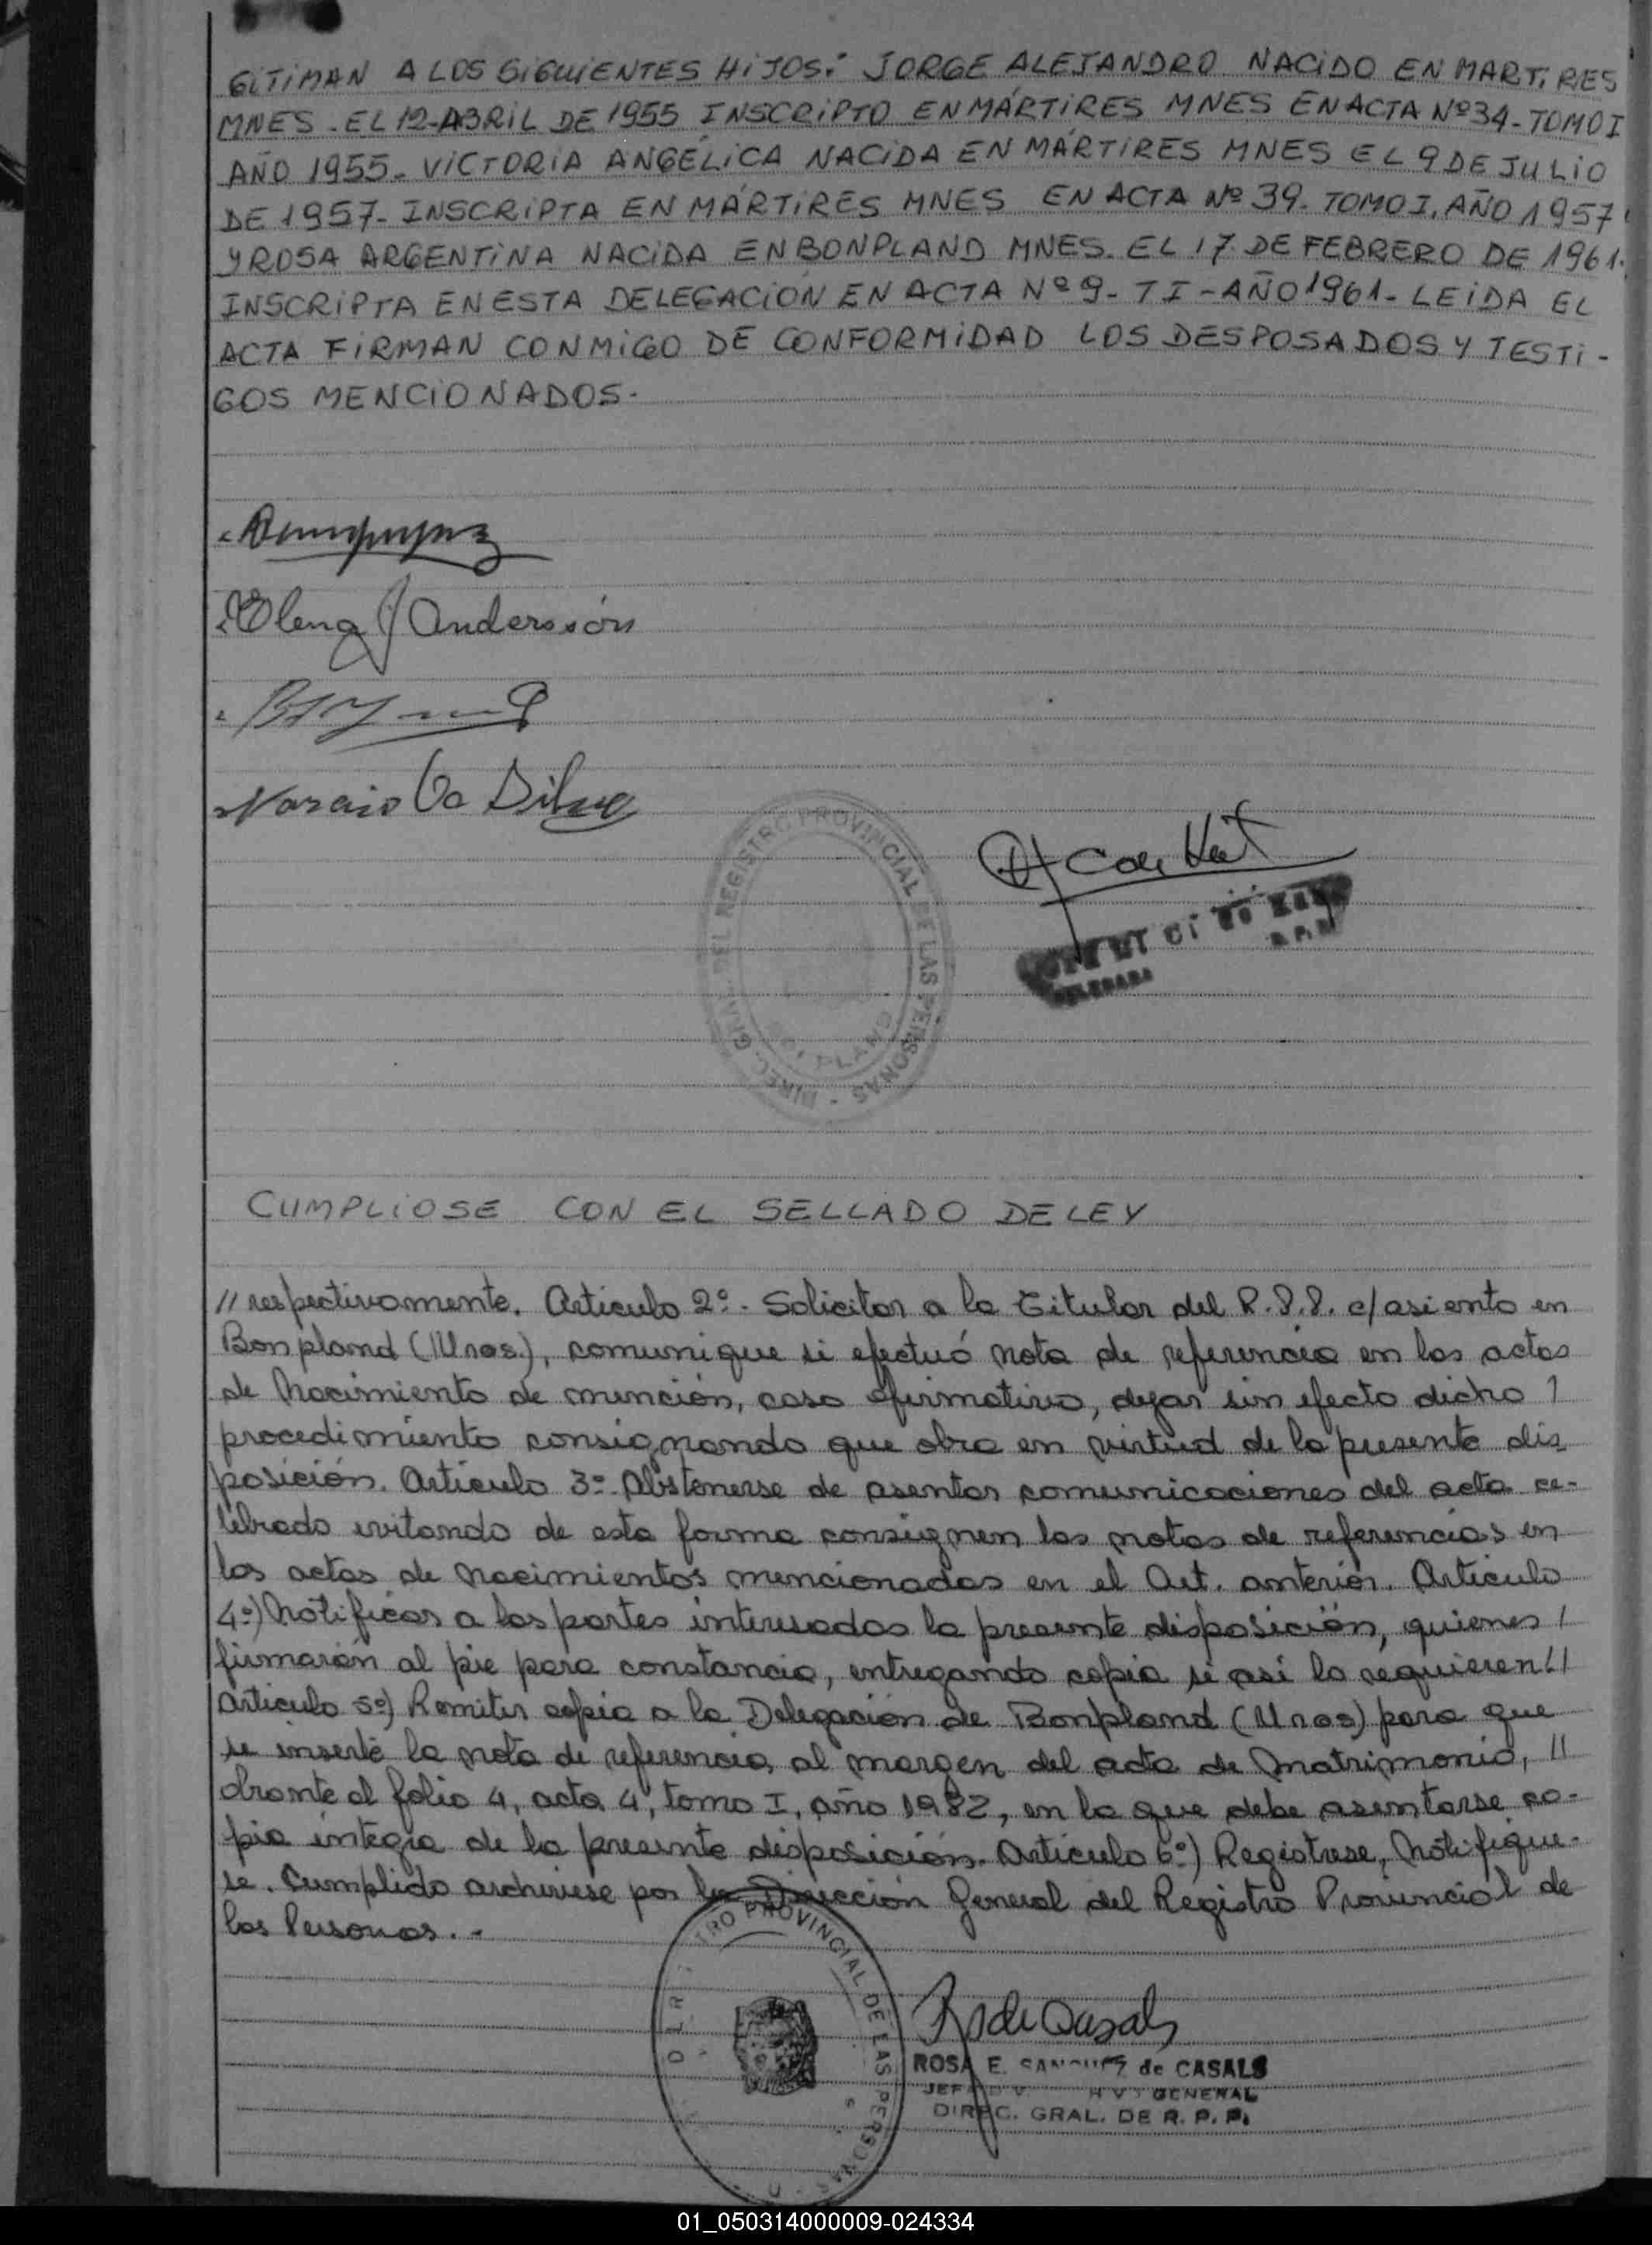 GITIMAN A LOS SIGUIENTES HIJOS: JORGE ALEJANDRO NACIDO EN MARTIRES
MNES. EL 12-ABRIL DE 1955 INSCRIPTO EN MÁRTIRES MNES EN ACTA Nº34-TOMO I
AÑO 1955- VICTORIA ANGÉLICA NACIDA EN MÁRTIRES MNES EL 9 DE JULIO
DE 1957- INSCRIPTA EN MÁRTIRES MNES EN ACTA Nº 39. TOMO I. AÑO 1957
Y ROSA ARGENTINA NACIDA EN BONPLAND MNES. EL 17 DE FEBRERO DE 1961.
INSCRIPTA EN ESTA DELEGACIÓN EN ACTA Nº 9- T I-AÑO 1961- LEIDA EL
ACTA FIRMAN CONMIGO DE CONFORMIDAD LOS DESPOSADOS Y TESTI-
GOS MENCIONADOS.
Elena J Anderssón
Da Silva
DIREC. GRAL. DEL REGISTRO PROVINCIAL DE LAS PERSONAS
BONPLAND
DELEGADA
CUMPLIOSE CON EL SELLADO DE LEY
// respectivamente. Articulo 2º.- Solicitar a la Titular del R.P.P. c/asiento en
Bonpland (Mnes.), comunique si efectuó nota de referencia en las actas
de Nacimiento de mención, caso afirmativo, dejar sin efecto dicho /
procedimiento consignando que obra en virtud de la presente dis
posición. Artículo 3º- Abstenerse de asentar comunicaciones del acta ce-
lebrado evitando de esta forma consignen las notas de referencias en
las actas de nacimientos mencionadas en el Art. anterior. Artículo
4º) Notificar a las partes interesadas la presente disposición, quienes /
firmarán al pie para constancia, entregando copia si así lo requieren //
Artículo 5º) Remitir copia a la Delegación de Bonpland (Mnes) para que
se inserte la nota de referencia, al margen del acta de Matrimonio, //
obrante al folio 4, acta 4, tomo I, año 1982, en la que debe asentarse co-
pia íntegra de la presente disposición. Artículo 6º) Regístrese, Notifíque-
se. Cumplido archívese por la Dirección General del Registro Provincial de
las Personas.-
TRO PROVINCIAL DE LAS PERSONAS
R de Casals
ROSA E. de CASALS
GENERAL
DIREC. GRAL. DE R. P. P.
01_050314000009-024334